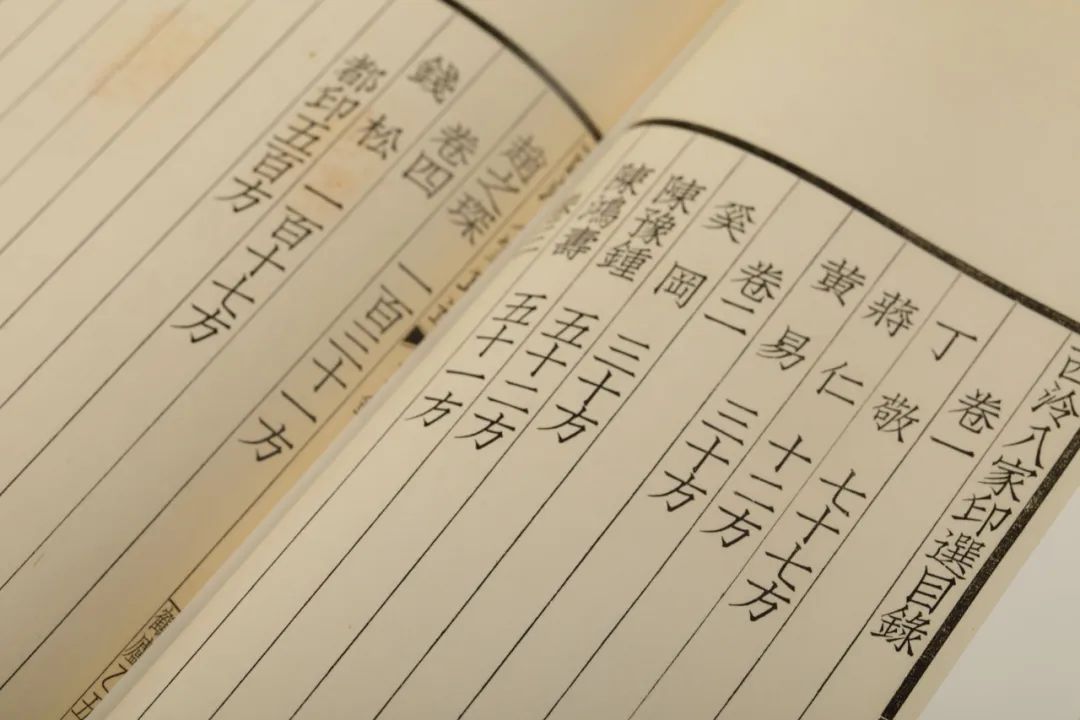 西泠八家印選目錄
卷一
丁敬 七十七方
蔣仁 十二方
黃易 三十方
卷二
奚岡 三十方
陳豫鍾 五十二方
陳鴻壽 五十一方
趙之琛 一百三十一方
卷四
錢松 一百十七方
都印五百方
鶴廬乙丑